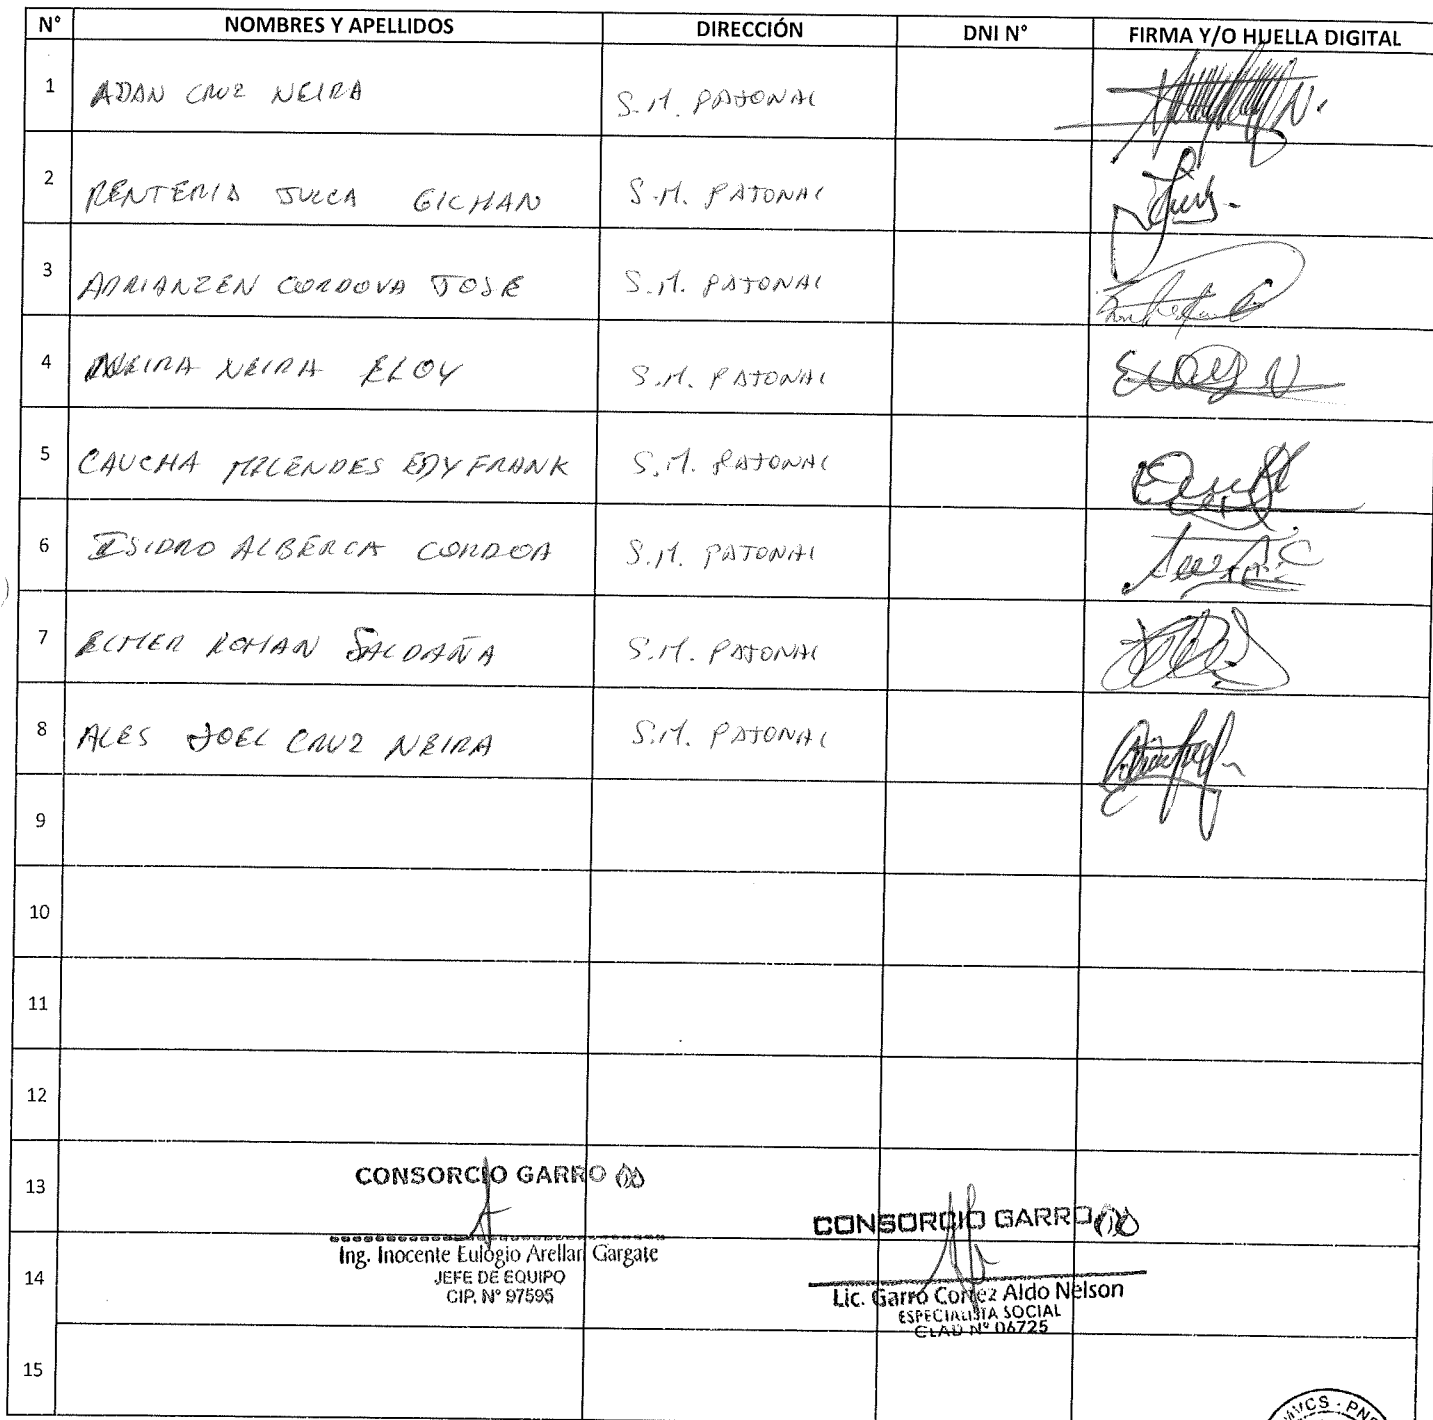 N° NOMBRES Y APELLIDOS DIRECCIÓN DNI N° FIRMA Y/O HUELLA DIGITAL
1 ADAN CRUZ NEIRA S.M. PAJONAL
2 RENTERIA JULCA GICHAN S.M. PAJONAL
3 ADRIANZEN CORDOVA JOSE S.M. PAJONAL
4 NEIRA NEIRA ELOY S.M. PAJONAL ELOY N
5 CAUCHA MELENDES EDY FRANK S.M. PAJONAL
6 ISIDRO ALBERCA CORDOA S.M. PAJONAL
7 ELMER ROMAN SALDAÑA S.M. PAJONAL
8 ALES JOEL CRUZ NEIRA S.M. PAJONAL
9
10
11
12
13
14
15
CONSORCIO GARRO
Ing. Inocente Eulogio Arellan Gargate
JEFE DE EQUIPO
CIP. N° 97595
CONSORCIO GARRO
Lic. Garro Cortez Aldo Nelson
ESPECIALISTA SOCIAL
CLAD N° 06725